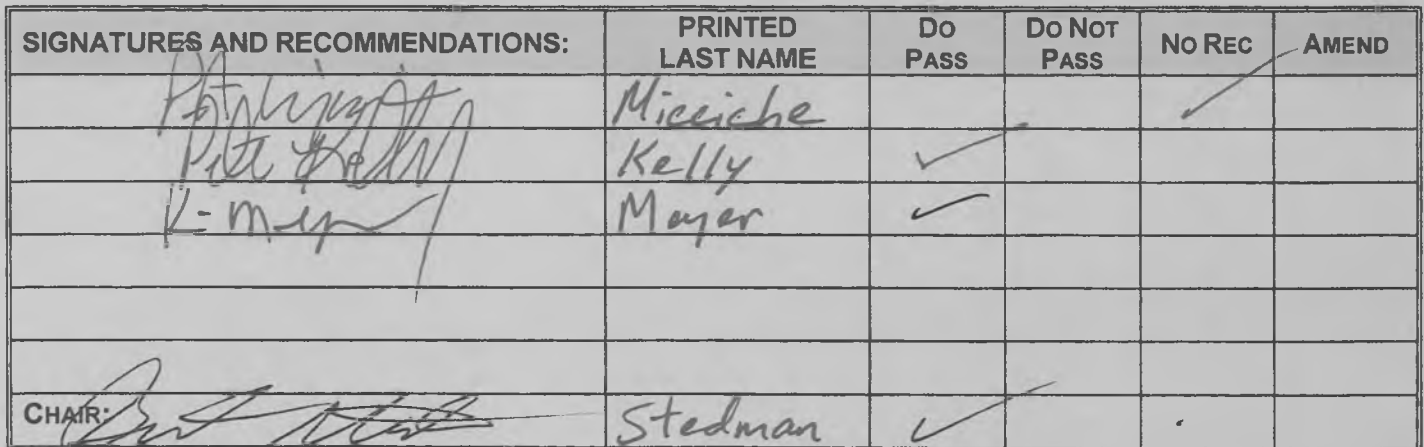 SIGNATURES AND RECOMMENDATIONS: PRINTED LAST NAME DO PASS DO NOT PASS NO REC AMEND
Micciche ✓
Pete Kelly Kelly ✓
K- Meyer Meyer ✓
CHAIR: Stedman ✓